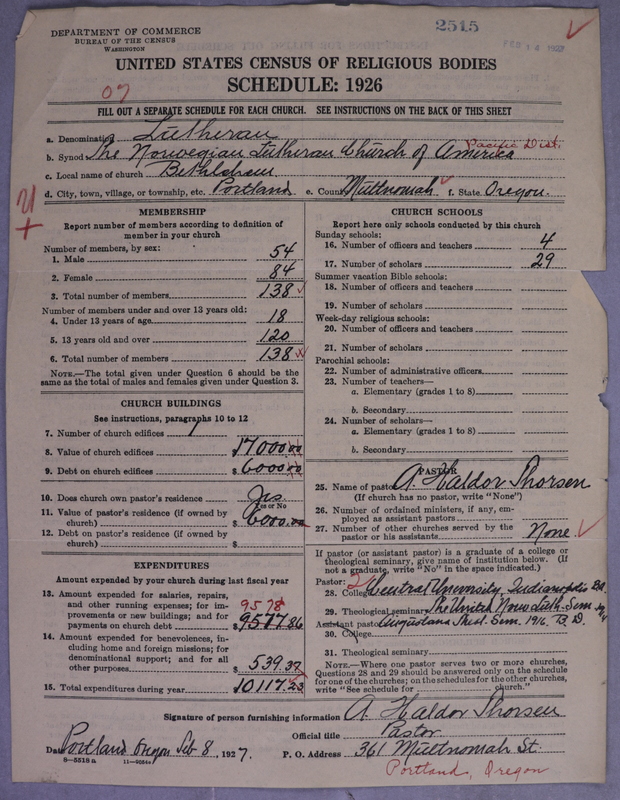 DEPARTMENT OF COMMERCE
BUREAU OF THE CENSUS
WASHINGTON
2515
FEB 14 1927
UNITED STATES CENSUS OF RELIGIOUS BODIES
SCHEDULE: 1926
FILL OUT A SEPARATE SCHEDULE FOR EACH CHURCH. SEE INSTRUCTIONS ON THE BACK OF THIS SHEET
a. Denomination Lutheran
b. Synod The Norwegian Lutheran Church of America Pacific Dist.
c. Local name of church Bethlehem
d. City, town, village, or township, etc. Portland e. County Multnomah f. State Oregon.
MEMBERSHIP
Report number of members according to definition of
member in your church
Number of members, by sex:
1. Male 54
2. Female 84
3. Total number of members 138
Number of members under and over 13 years old:
4. Under 13 years of age 18
5. 13 years old and over 120
6. Total number of members 138
NOTE.—The total given under Question 6 should be the
same as the total of males and females given under Question 3.
CHURCH BUILDINGS
See instructions, paragraphs 10 to 12
7. Number of church edifices 1
8. Value of church edifices $ 17000.00
9. Debt on church edifices $ 6000.00
10. Does church own pastor's residence Yes
Yes or No
11. Value of pastor's residence (if owned by
church) $ 6000.00
12. Debt on pastor's residence (if owned by
church) $
EXPENDITURES
Amount expended by your church during last fiscal year
13. Amount expended for salaries, repairs,
and other running expenses; for im-
provements or new buildings; and for
payments on church debt $ 9577.86
9578
14. Amount expended for benevolences, in-
cluding home and foreign missions; for
denominational support; and for all
other purposes $ 539.37
15. Total expenditures during year $ 10,117.23
CHURCH SCHOOLS
Report here only schools conducted by this church
Sunday schools:
16. Number of officers and teachers 4
17. Number of scholars 29
Summer vacation Bible schools:
18. Number of officers and teachers
19. Number of scholars
Week-day religious schools:
20. Number of officers and teachers
21. Number of scholars
Parochial schools:
22. Number of administrative officers
23. Number of teachers—
a. Elementary (grades 1 to 8)
b. Secondary
24. Number of scholars—
a. Elementary (grades 1 to 8)
b. Secondary
PASTOR
25. Name of pastor A. Haldor Thorsen
(If church has no pastor, write "None")
26. Number of ordained ministers, if any, em-
ployed as assistant pastors
27. Number of other churches served by the
pastor or his assistants None
If pastor (or assistant pastor) is a graduate of a college or
theological seminary, give name of institution below. (If
not a graduate, write "No" in the space indicated.)
Pastor:
28. College Central University, Indianapolis
29. Theological seminary The United Norw. Luth. Sem
Assistant pastor: Augustana Theol. Sem. 1916, B.D.
30. College
31. Theological seminary
NOTE.—Where one pastor serves two or more churches,
Questions 28 and 29 should be answered only on the schedule
for one of the churches; on the schedules for the other churches,
write "See schedule for church."
Signature of person furnishing information A. Haldor Thorsen
Official title Pastor
Date Portland Oregon Feb 8, 1927. P. O. Address 361 Multnomah St.
Portland, Oregon
8—5518a 11—9264a